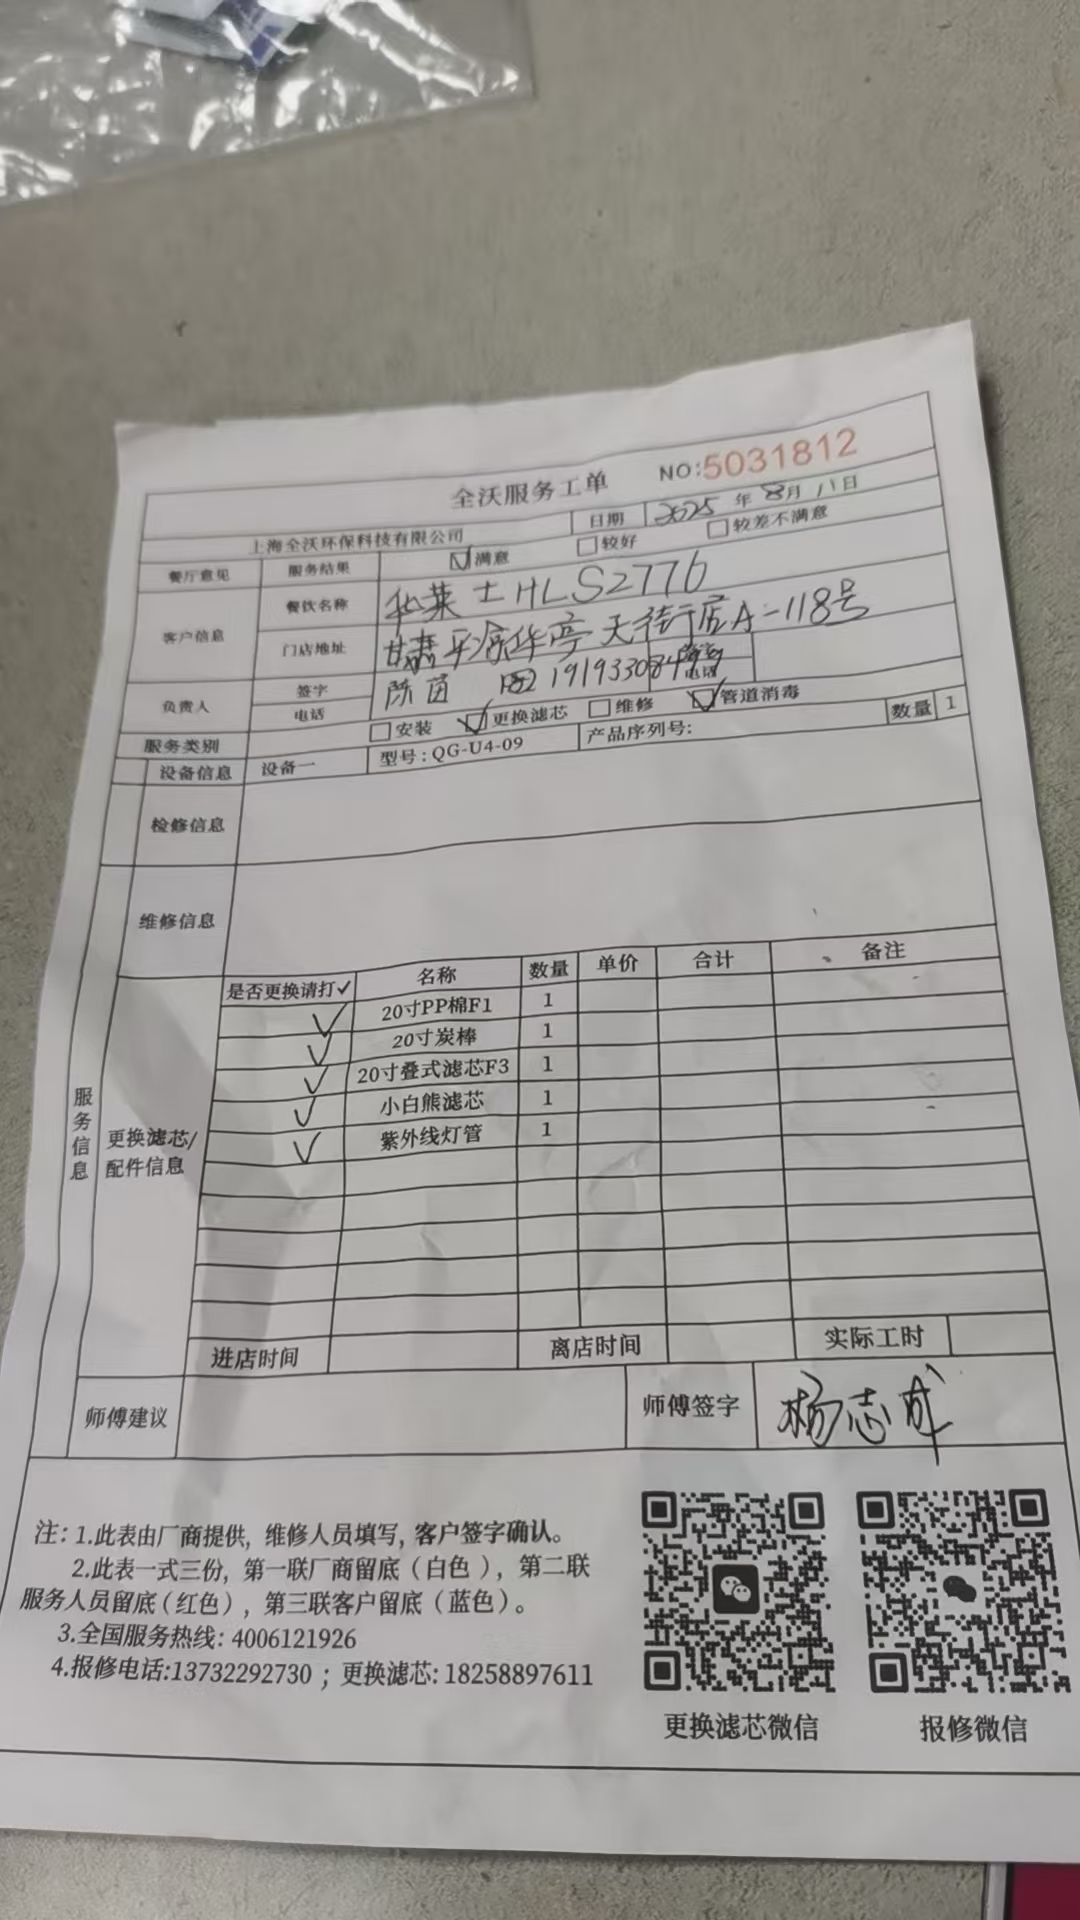 全沃服务工单 NO:5031812
上海全沃环保科技有限公司 日期 2025 年 8月 11日
餐厅意见 服务结果 ☑满意 □较好 □较差不满意
客户信息 餐饮名称 华莱士HLS2776
门店地址 甘肃平凉华亭天街店A-118号
负责人 签字 陈茵
电话 电话
服务类别 □安装 ☑更换滤芯 □维修 ☑管道消毒
设备信息 设备一 型号:QG-U4-09 产品序列号: 数量 1
检修信息
维修信息
服务信息
更换滤芯/配件信息
是否更换请打✓ 名称 数量 单价 合计 备注
✓ 20寸PP棉F1 1
✓ 20寸炭棒 1
✓ 20寸叠式滤芯F3 1
✓ 小白熊滤芯 1
✓ 紫外线灯管 1
进店时间 离店时间 实际工时
师傅建议 师傅签字 杨志成
注: 1.此表由厂商提供, 维修人员填写, 客户签字确认。
2.此表一式三份, 第一联厂商留底（白色）, 第二联
服务人员留底（红色）, 第三联客户留底（蓝色）。
3.全国服务热线: 4006121926
4.报修电话:13732292730 ; 更换滤芯: 18258897611
更换滤芯微信 报修微信